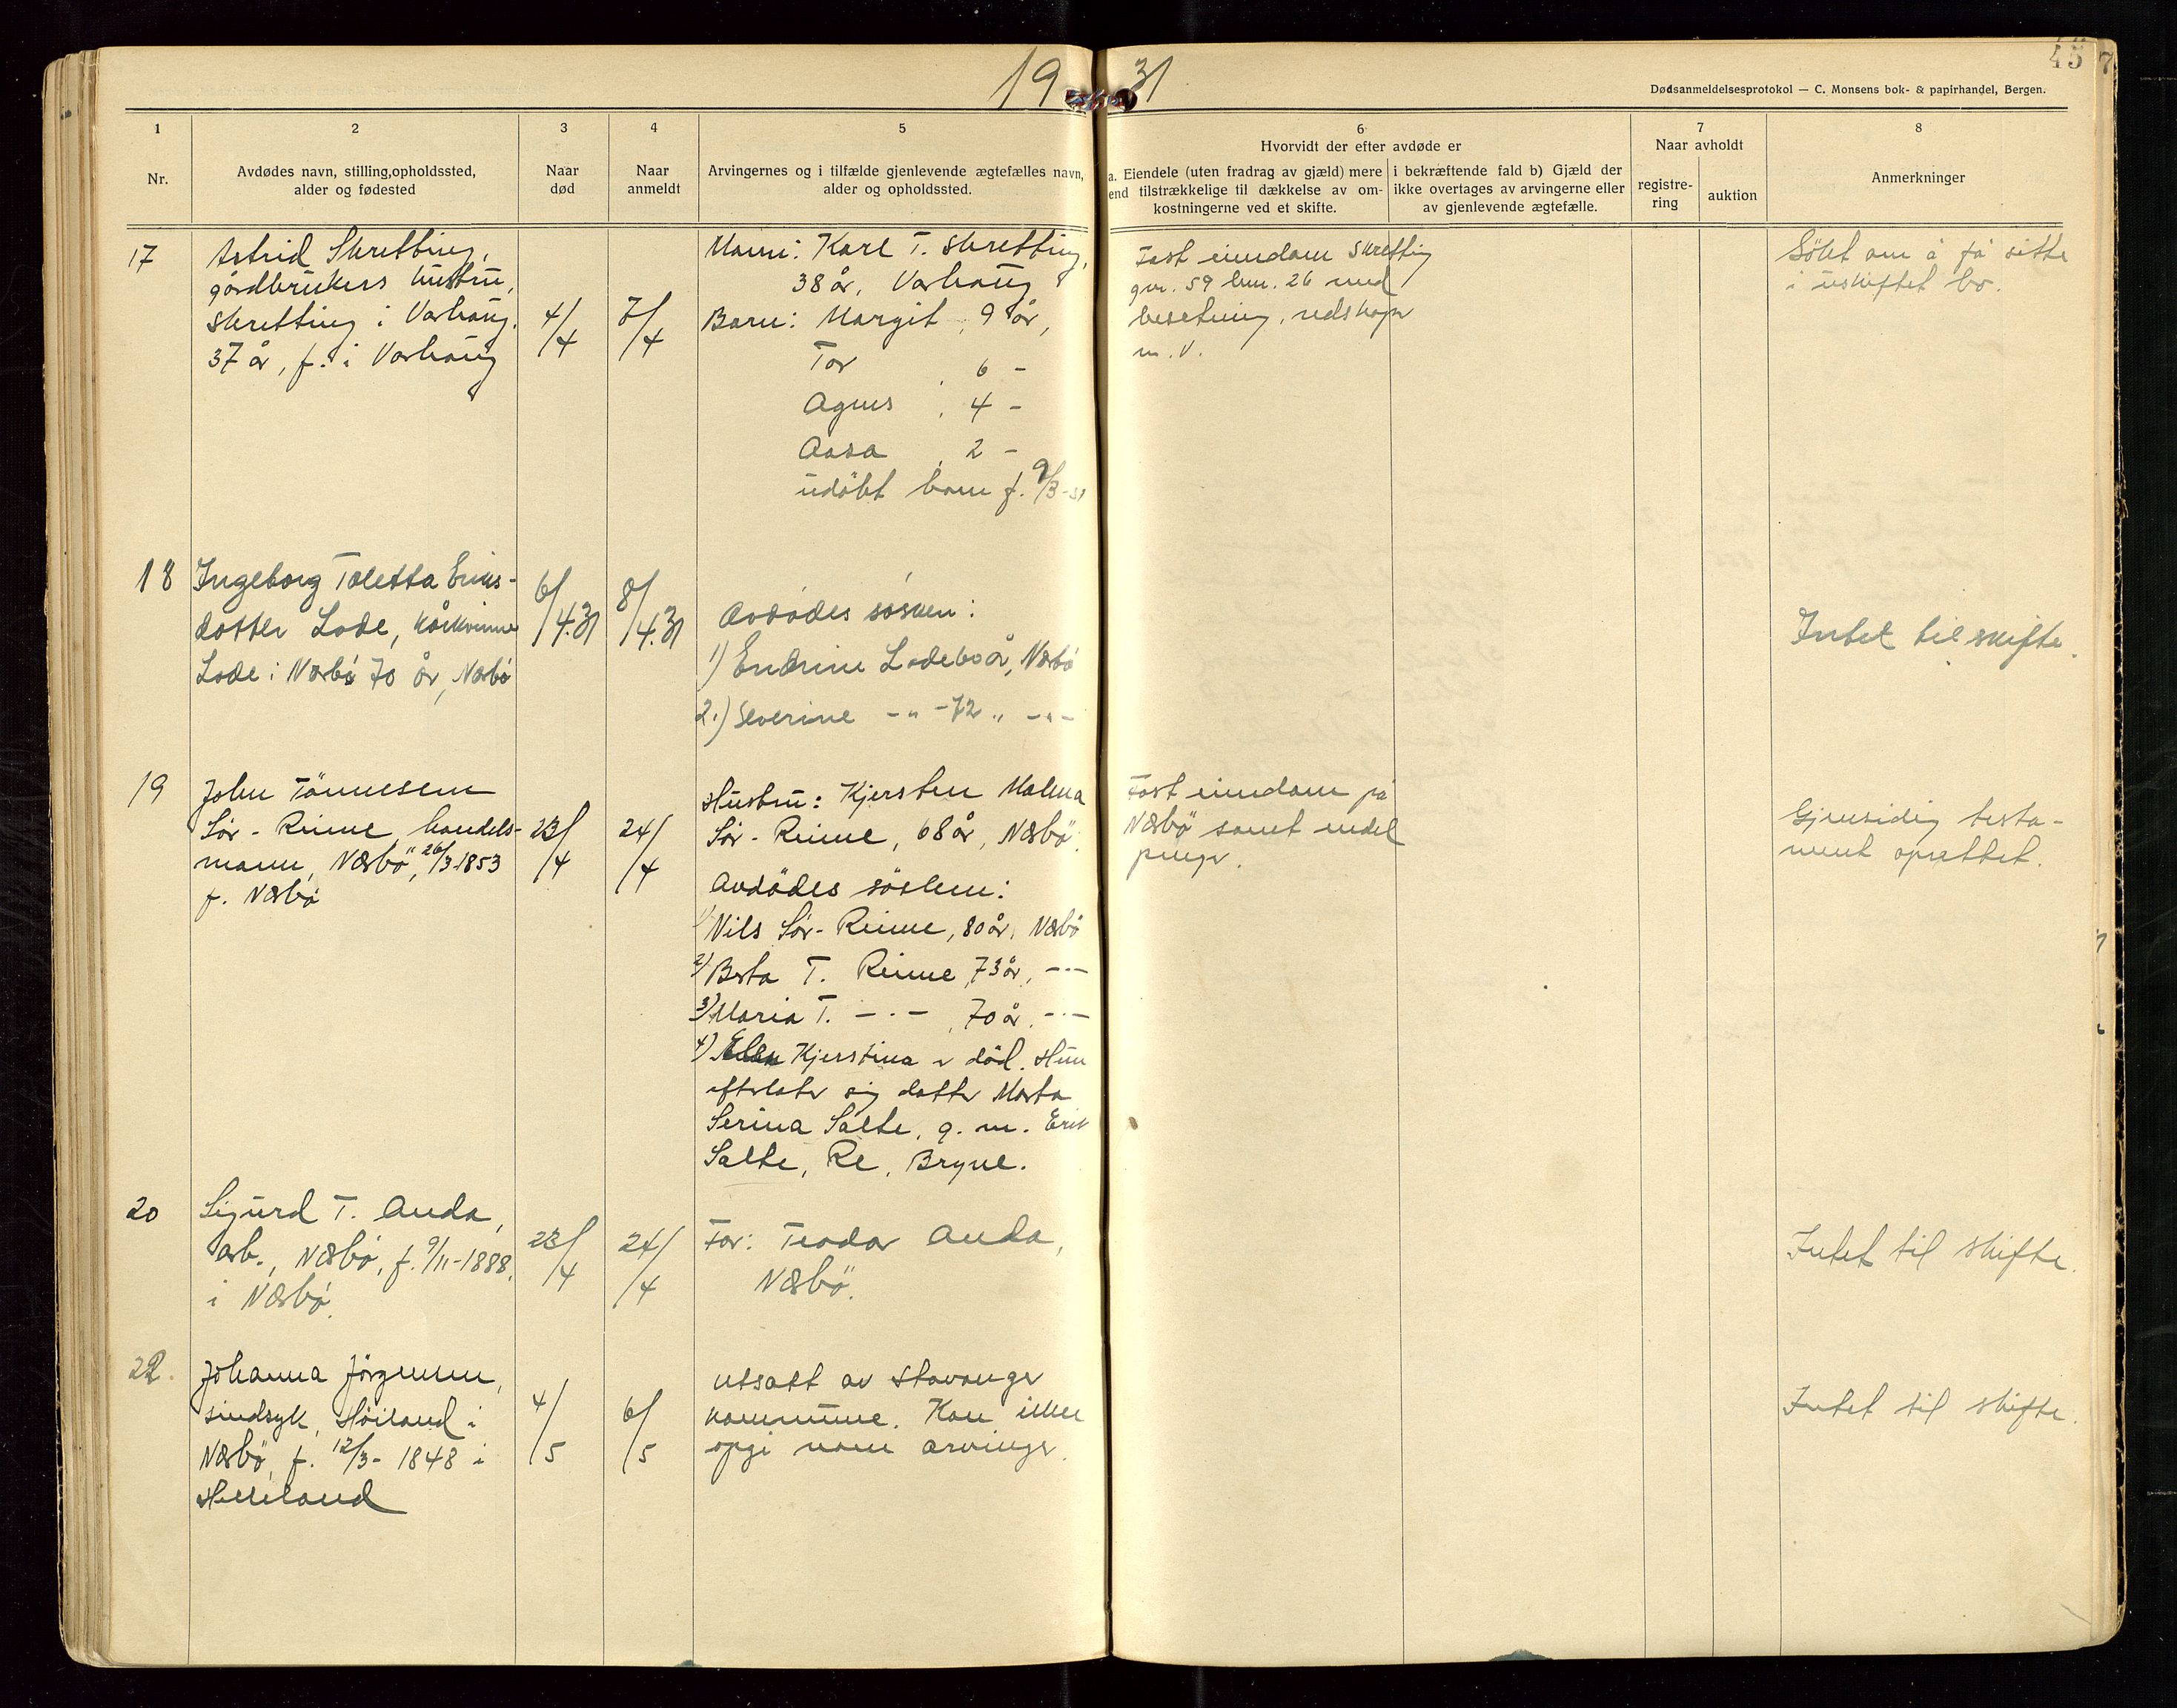 19 31
45
7
Dødsanmeldelsesprotokol — C. Monsens bok- & papirhandel, Bergen.
1
Nr.
2
Avdødes navn, stilling, opholdssted,
alder og fødested
3
Naar
død
4
Naar
anmeldt
5
Arvingernes og i tilfælde gjenlevende ægtefælles navn,
alder og opholdssted.
6
Hvorvidt der efter avdøde er
a. Eiendele (uten fradrag av gjæld) mere
end tilstrækkelige til dækkelse av om-
kostningerne ved et skifte.
i bekræftende fald b) Gjæld der
ikke overtages av arvingerne eller
av gjenlevende ægtefælle.
7
Naar avholdt
registre-
ring
auktion
8
Anmerkninger
17
Astrid Skretting,
gårdbrukers hustru,
Skretting i Varhaug,
37 år, f. i Varhaug
4/4
7/4
Mann: Karl T. Skretting,
38 år, Varhaug
Barn: Margit, 9 år,
Tor, 6 -
Agnes, 4 -
Aasa, 2 -
udöbt barn f. 9/3-31
Fast eiendom Skretting
gnr. 59 bnr. 26 med
besetning, redskaper
m. v.
Sökt om å få sitte
i uskiftet bo.
18
Ingeborg Toletta Eriks-
dotter Lode, kårkvinne
Lode i Nærbö 70 år, Nærbö
6/4.31
8/4.31
Avdödes sösken:
1) Endrine Lode 60 år, Nærbö
2.) Severine -"- 72 " -"-
Intet til skifte.
19
John Tönnesen
Sör-Reime, handels-
mann, Nærbö, 26/3 1853
f. Nærbö
23/4
24/4
Hustru: Kjersten Malena
Sör-Reime, 68 år, Nærbö.
Avdödes sösken:
1) Nils Sör-Reime, 80 år, Nærbö
2) Berta T. Reime, 73 år, -"-
3) Maria T. -"-, 70 år, -"-
4) Kjerstina er död. Hun
efterlater sig datter Marta
Serina Salte, g. m. Erik
Salte, Re, Bryne.
Fast eiendom på
Nærbö samt endel
penger.
Gjensidig testa-
ment oprettet.
20
Sigurd T. Anda,
arb., Nærbö, f. 9/11-1888,
i Nærbö.
23/4
24/4
Far: Teodor Anda,
Nærbö.
Intet til skifte.
22.
Johanna Jörgensen,
sindsyk, Höiland i
Nærbö, f. 12/3- 1848 i
Helleland
4/5
6/5
utsatt av Stavanger
kommune. Kan ikke
opgi noen arvinger.
Intet til skifte.